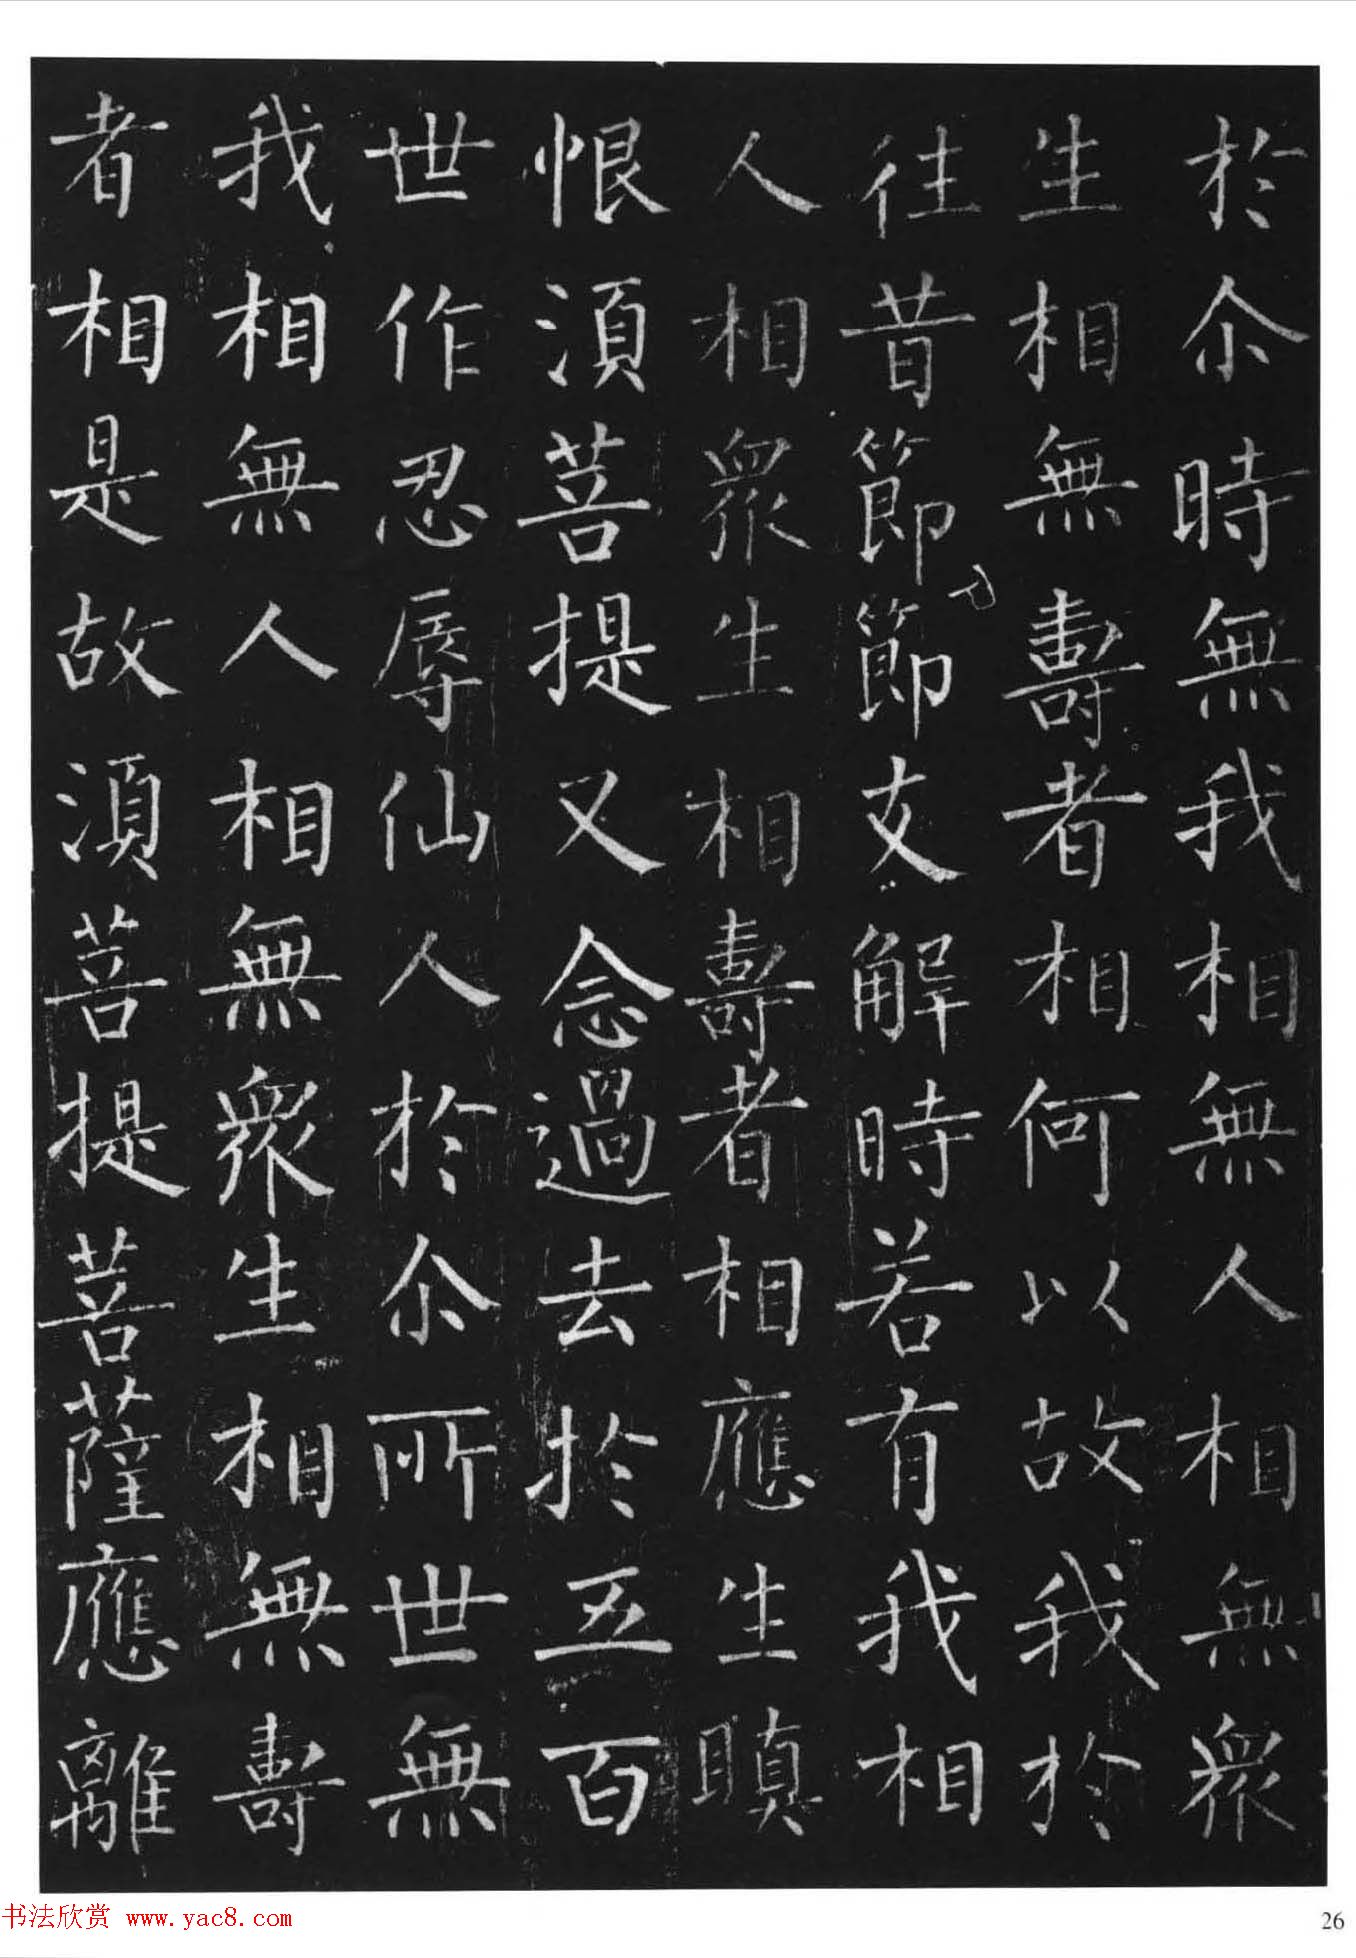 於尒時無我相無人相無眾
生相無壽者相何以故我於
往昔節節支解時若有我相
人相眾生相壽者相應生瞋
恨須菩提又念過去於五百
世作忍辱仙人於尒所世無
我相無人相無眾生相無壽
者相是故須菩提菩薩應離
书法欣赏 www.yac8.com
26